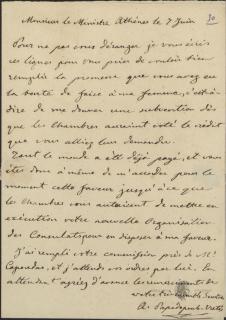 30
Monsieur le Ministre Athènes le 7 Juin
Pour ne pas vous déranger je vous écris
ces lignes pour vous prier de vouloir bien
remplir la promesse que vous avez eu
la bonté de faire à ma femme, c'est-à-
dire de me donner une subvention dès
que les Chambres auraient voté le crédit
que vous alliez leur demander.
Tout le monde a été déjà payé, et vous
êtes donc à même de m'accorder pour le
moment cette faveur jusqu'à ce que
les Chambres vous autorisent de mettre en
exécution votre nouvelle Organisation
des Consulats pour en disposer à ma faveur.
J'ai rempli votre commission près de Mr
et j'attends vos ordres par lui. En
attendant agréez d'avance les remerciements de
votre très humble
A. Papadopoulo Vretos